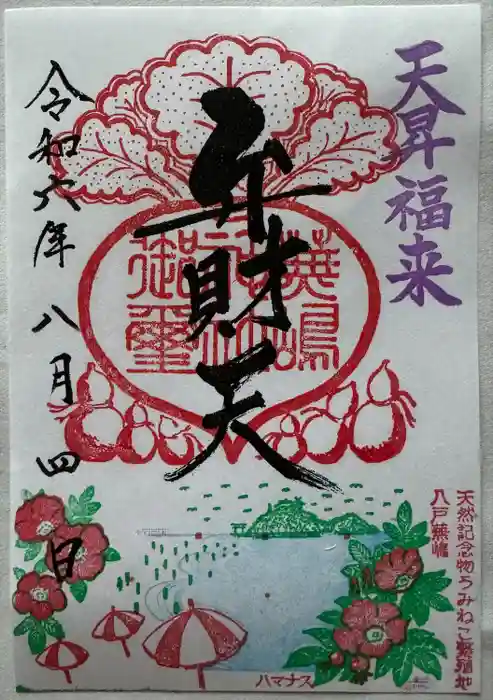 天昇福来
弁財天
蕪嶋神社御璽
令和六年八月四日
天然記念物うみねこ繁殖地
八戸蕪嶋
ハマナス